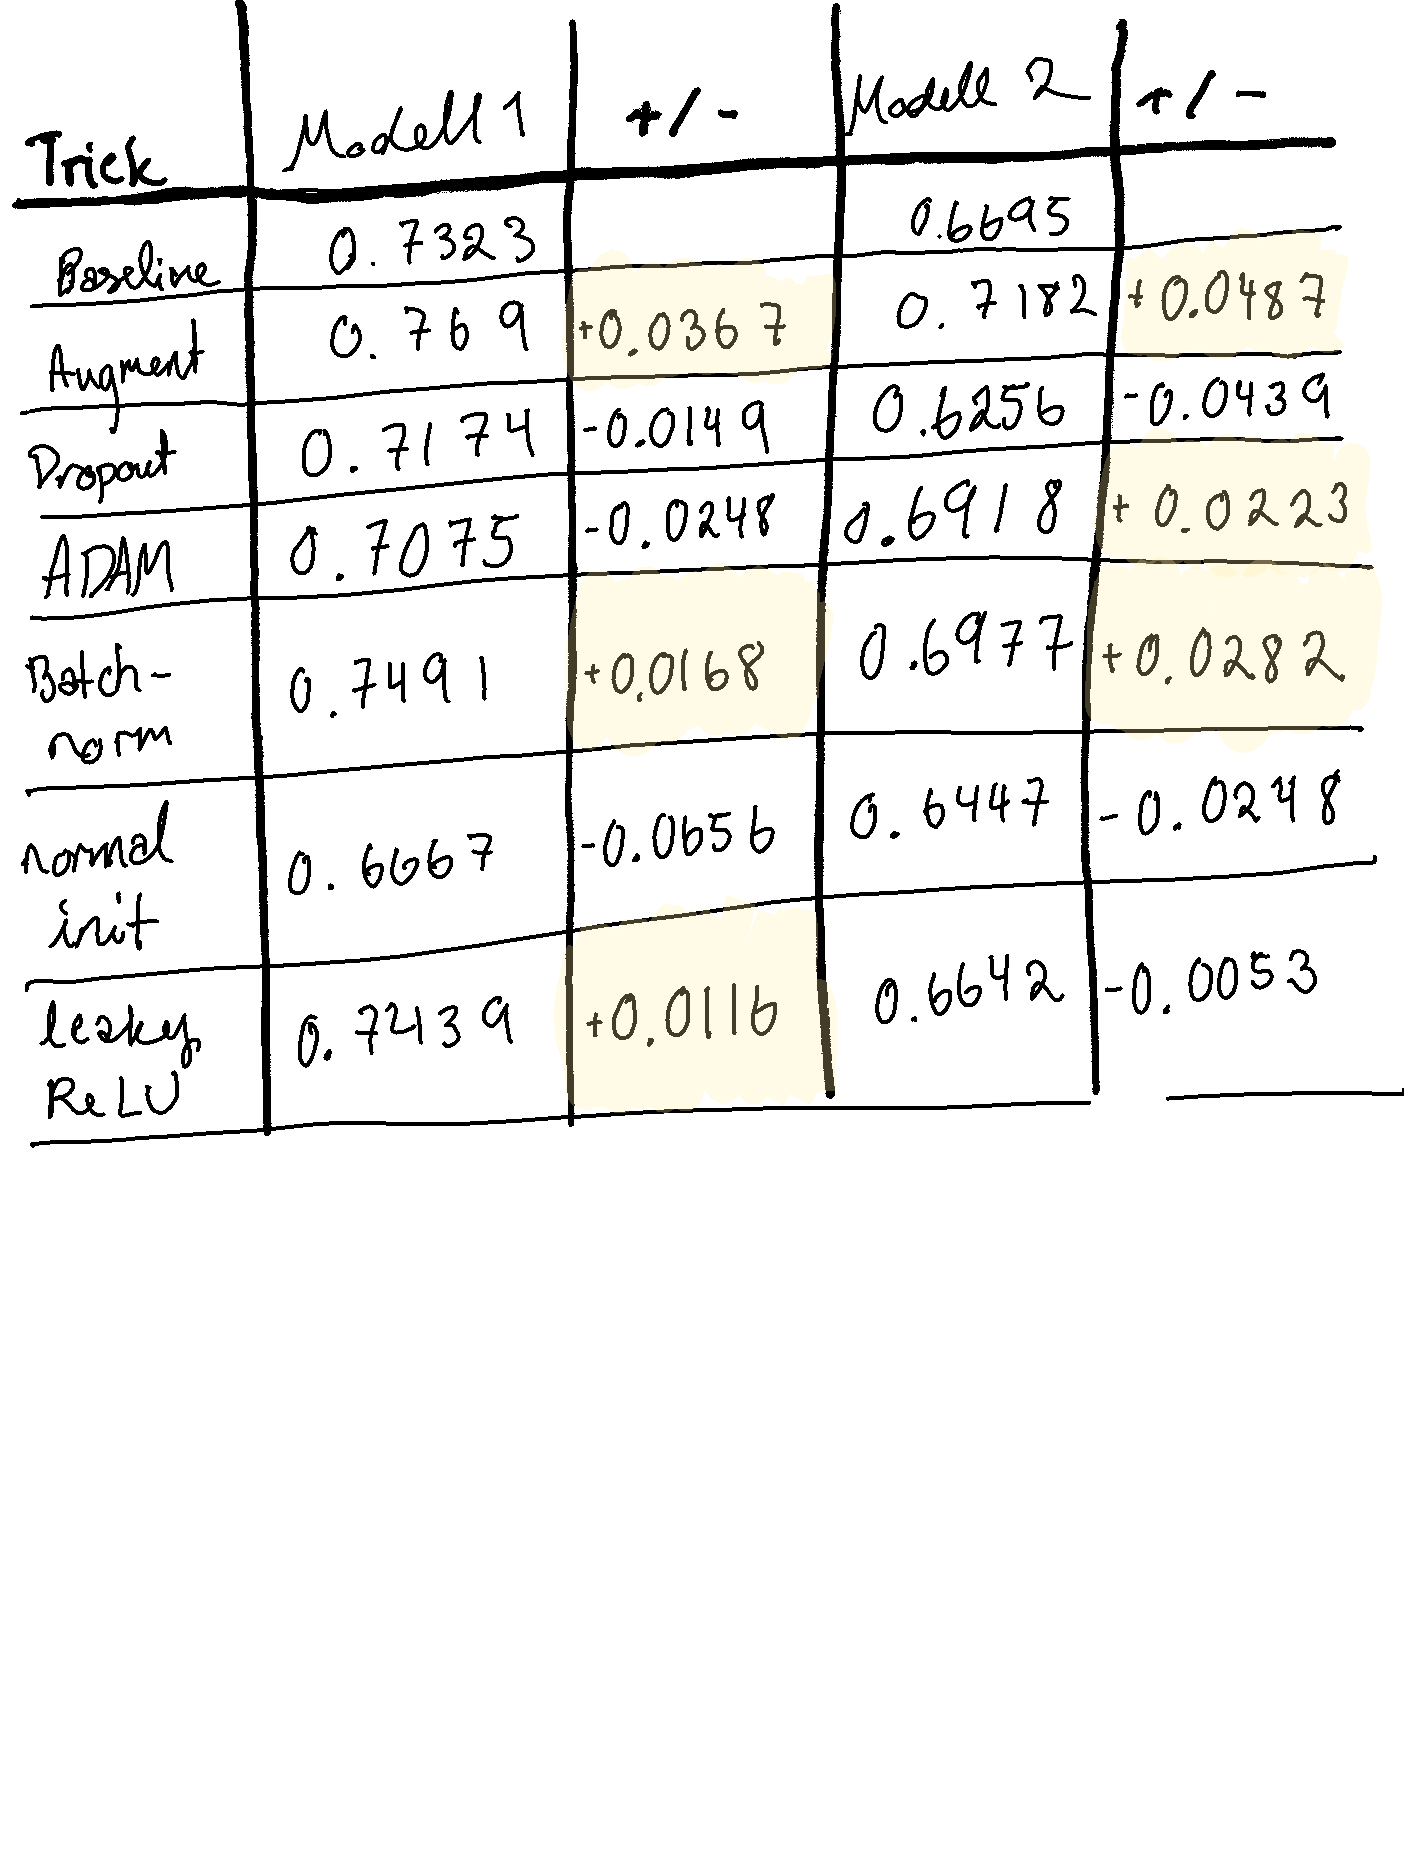 Trick Modell 1 +/- Modell 2 +/-
Baseline 0.7323 0.6695
Augment 0.769 +0.0367 0.7182 +0.0487
Dropout 0.7174 -0.0149 0.6256 -0.0439
ADAM 0.7075 -0.0248 0.6918 +0.0223
Batch-
norm 0.7491 +0.0168 0.6977 +0.0282
normal
init 0.6667 -0.0656 0.6447 -0.0248
leaky
ReLU 0.7439 +0.0116 0.6642 -0.0053